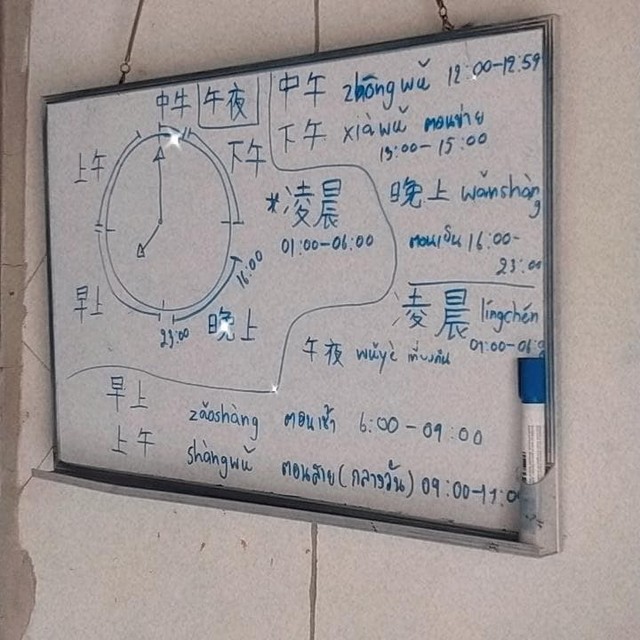 中午 午夜
上午 下午
早上 晚上
16:00
23:00
中午 zhōngwǔ 12:00-12:59
下午 xiàwǔ ตอนบ่าย
13:00-15:00
*凌晨
01:00-06:00
晚上 wǎnshàng
ตอนเย็น 16:00-
23:00
凌晨 língchén
午夜 wǔyè เที่ยงคืน
早上 zǎoshàng ตอนเช้า 6:00-09:00
上午 shàngwǔ ตอนสาย(กลางวัน)